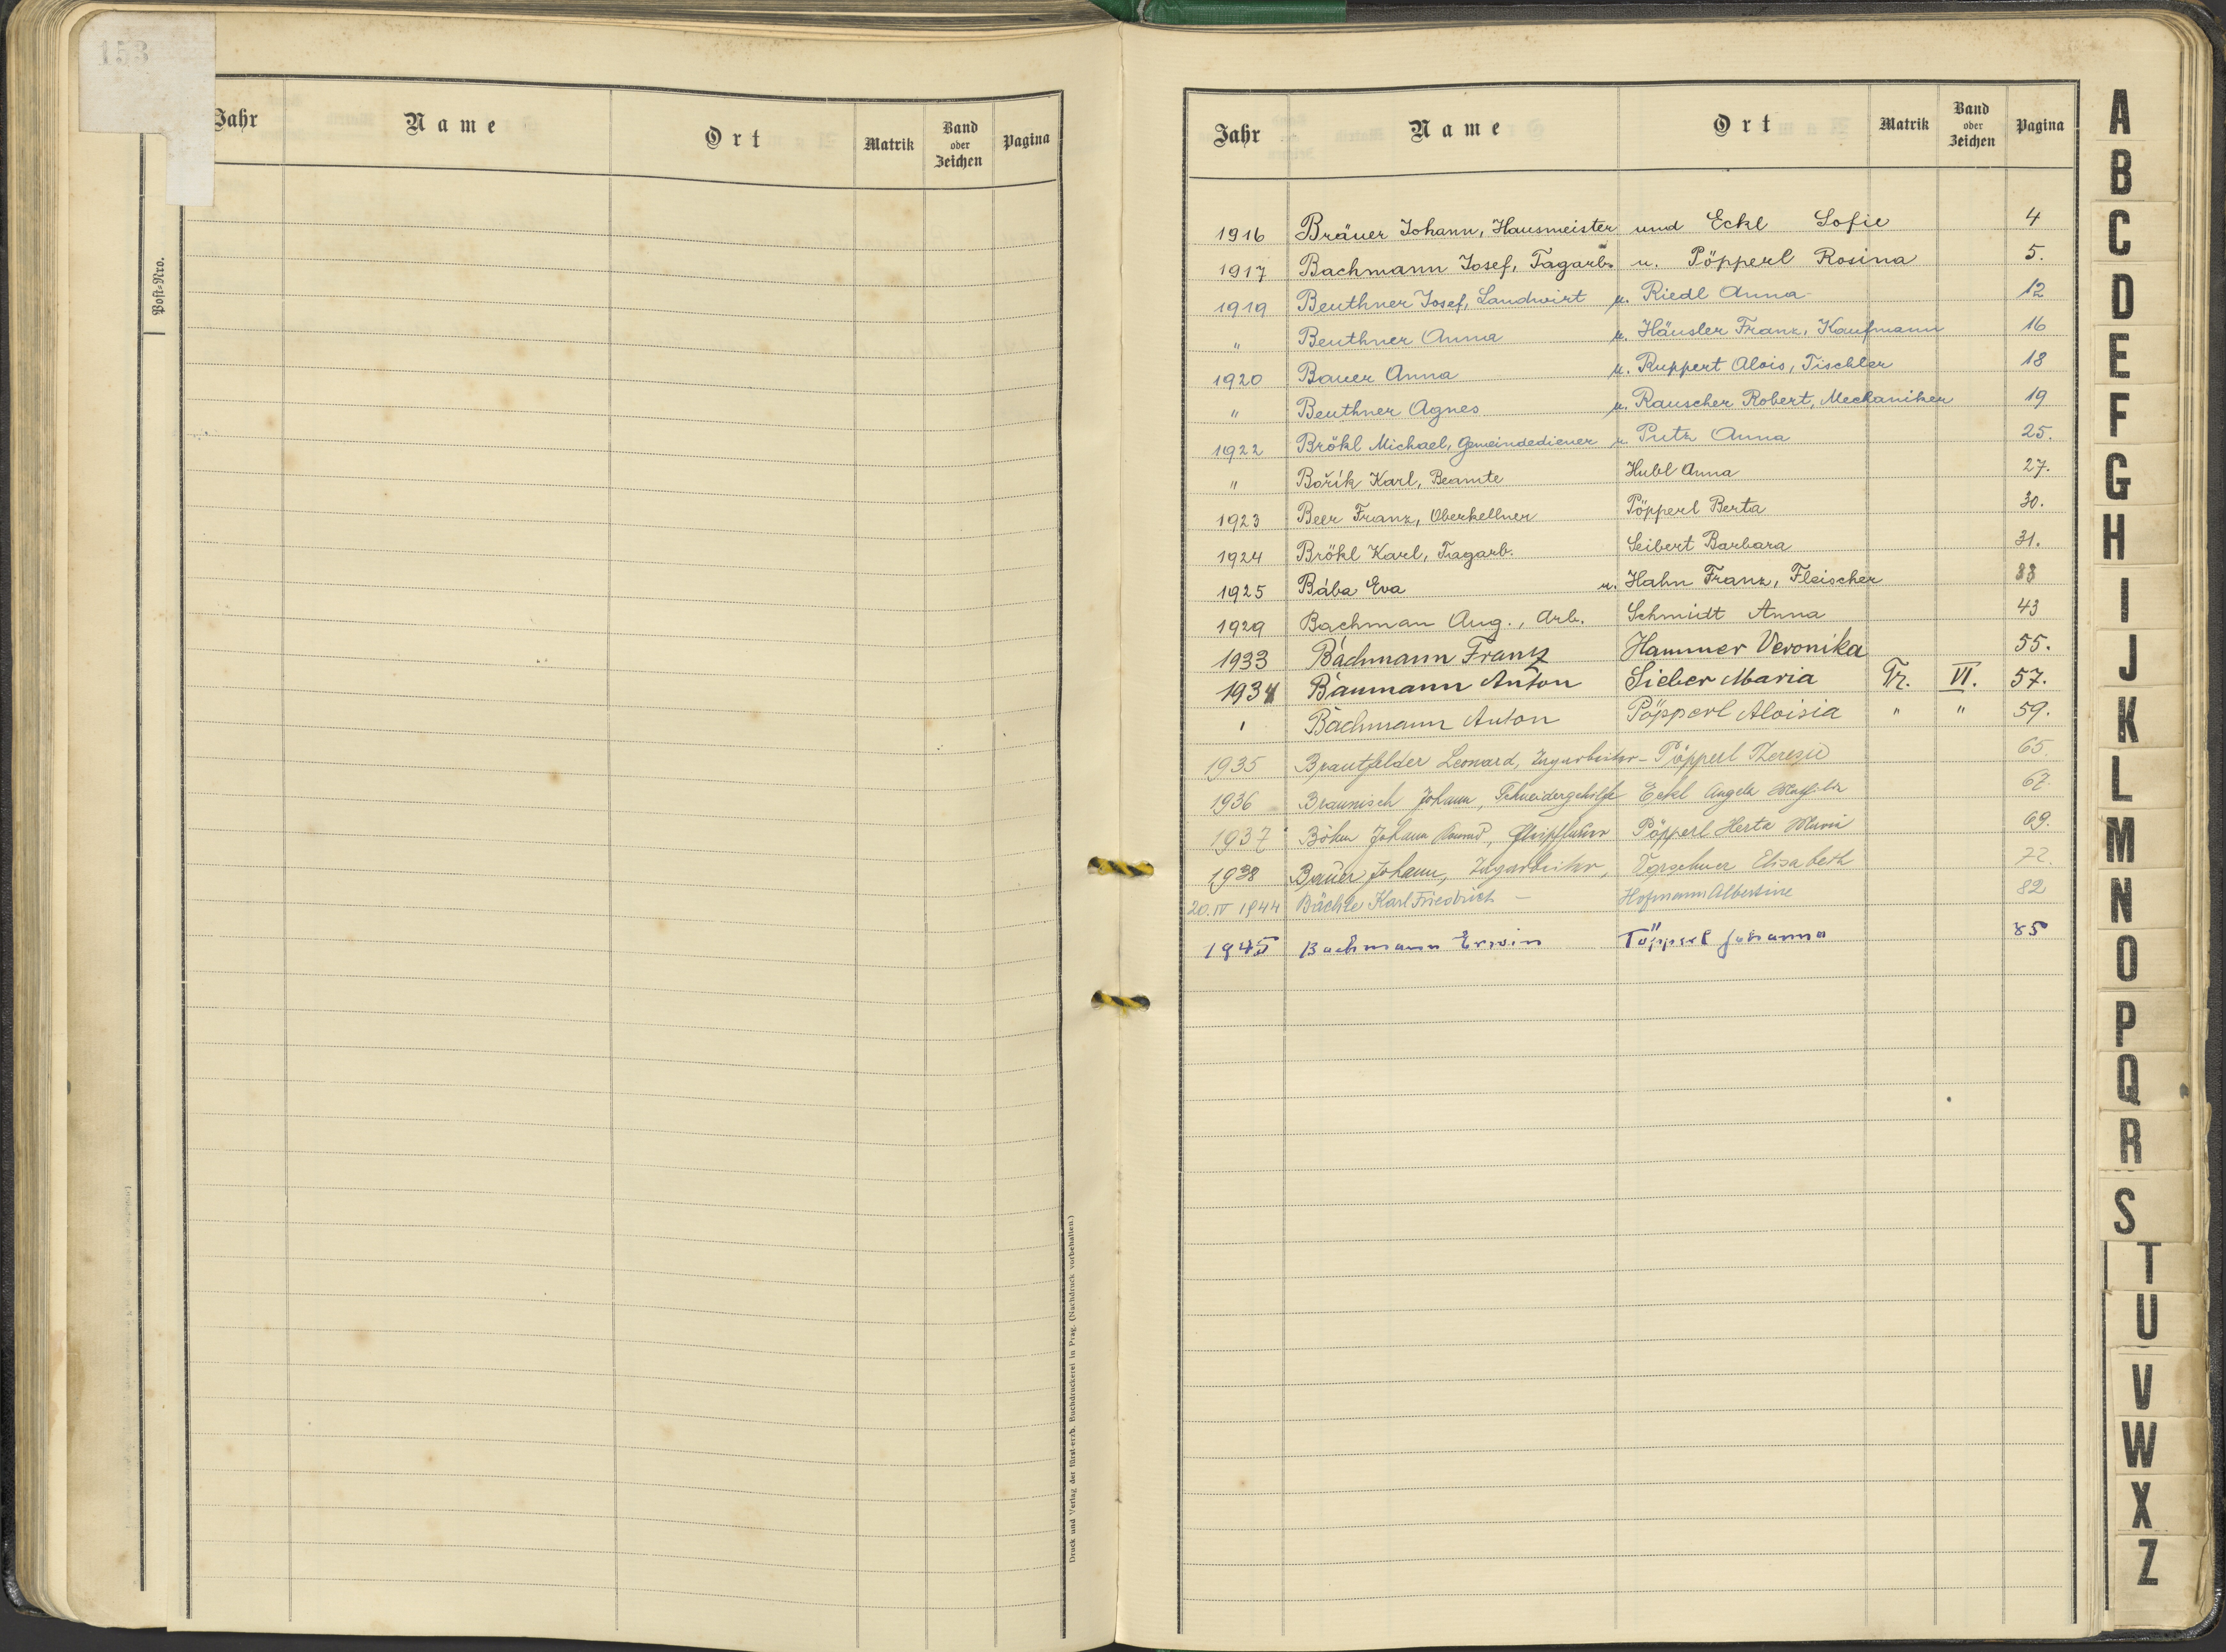 153
Post=Nro.
Jahr Name Ort Matrik Band oder Zeichen Pagina
Druck und Verlag der fürst-erzb. Buchdruckerei in Prag. (Nachdruck vorbehalten.)
Jahr Name Ort Matrik Band oder Zeichen Pagina
1916 Bräuer Johann, Hausmeister und Eckl Sofie 4
1917 Bachmann Josef, Tagarb. u. Pöpperl Rosina 5.
1919 Beuthner Josef, Landwirt u. Riedl Anna 12
" Beuthner Anna u. Häusler Franz, Kaufmann 16
1920 Bauer Anna u. Ruppert Alois, Tischler 18
" Beuthner Agnes u. Rauscher Robert, Mechaniker 19
1922 Brökl Michael, Gemeindediener u Putz Anna 25.
" Bořík Karl, Beamte Hubl Anna 27.
1923 Beer Franz, Oberkellner Pöpperl Berta 30.
1924 Brökl Karl, Tagarb. Seibert Barbara 31.
1925 Bába Eva u. Hahn Franz, Fleischer 33
1929 Bachman Aug., Arb. Schmidt Anna 43
1933 Bachmann Franz Hammer Veronika 55.
1934 Baumann Anton Sieber Maria Tr. VI. 57.
" Bachmann Anton Pöpperl Aloisia " " 59.
1935 Brautfelder Leonard, Pöpperl Theresie 65.
1936 Braunisch Johann, Schneidergehilfe Eckl Angela 67.
1937 Böhm Johann Pöpperl Herta Maria 69.
1938 Bauer Johann, Elisabeth 72.
20.IV 1944 Bächle Karl Friedrich – Hofmann Albertine 82
1945 Bachmann Erwin Töpperl Johanna 85
A
B
C
D
E
F
G
H
I
J
K
L
M
N
O
P
Q
R
S
T
U
V
W
X
Z